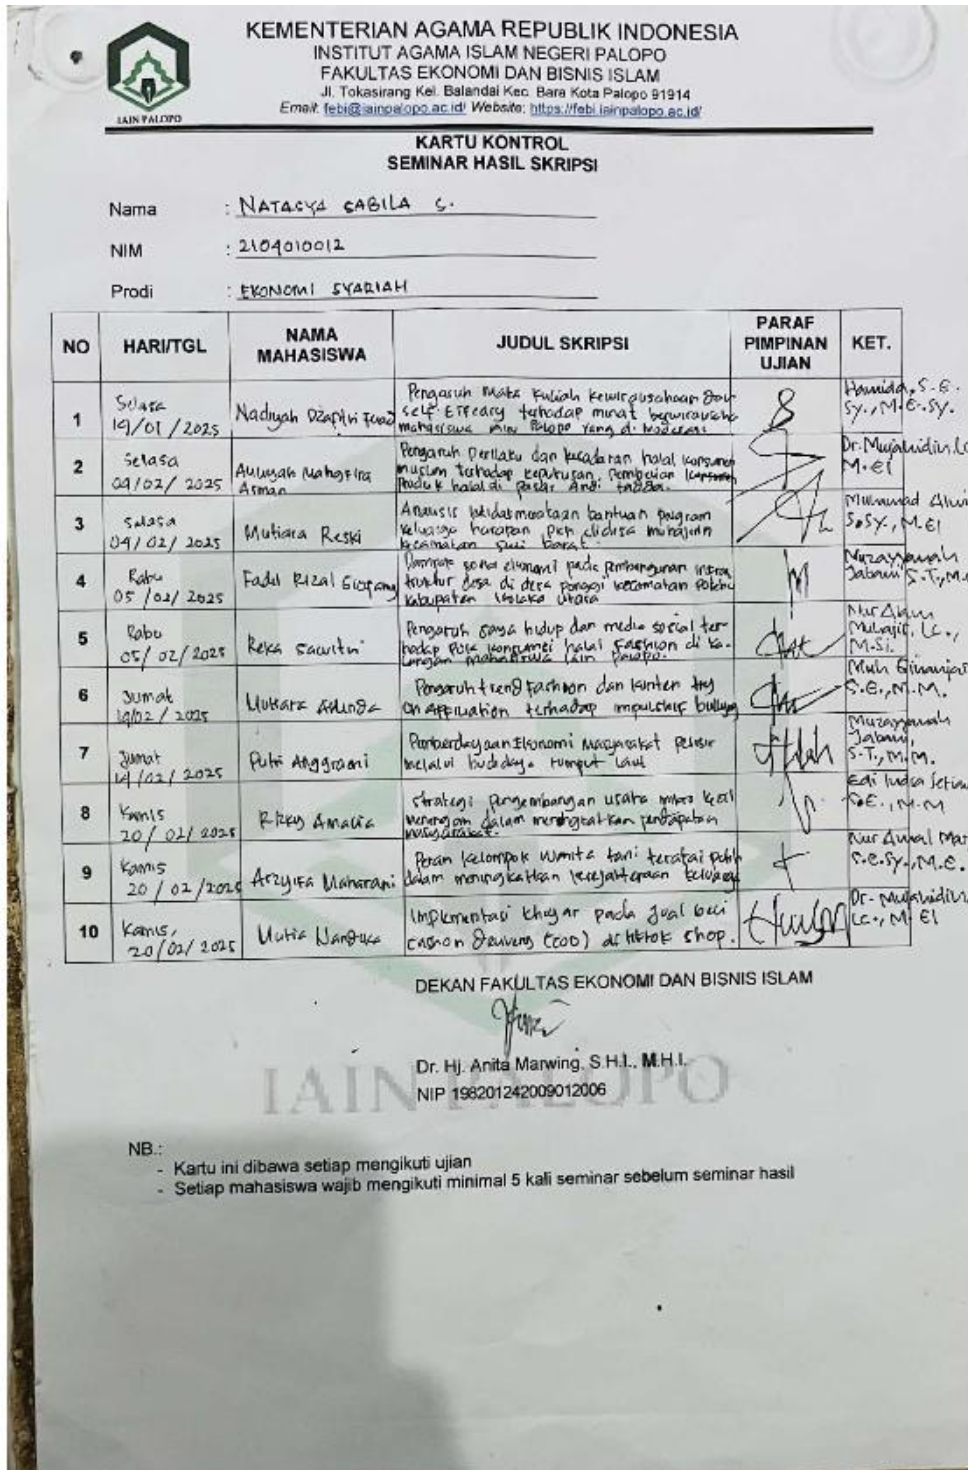 KEMENTERIAN AGAMA REPUBLIK INDONESIA
INSTITUT AGAMA ISLAM NEGERI PALOPO
FAKULTAS EKONOMI DAN BISNIS ISLAM
Jl. Tokasirang Kel. Balandai Kec. Bara Kota Palopo 91914
Email: febi@iainpalopo.ac.id/ Website: https://febi.iainpalopo.ac.id/
IAIN PALOPO
KARTU KONTROL
SEMINAR HASIL SKRIPSI
Nama : NATASYA SABILA S.
NIM : 2104010012
Prodi : EKONOMI SYARIAH
NO HARI/TGL NAMA MAHASISWA JUDUL SKRIPSI PARAF PIMPINAN UJIAN KET.
1 Selasa 19/01/2025 Nadiyah
Pengaruh Mata Kuliah Kewirausahaan
self terhadap minat berwirausaha
mahasiswa Palopo yang di
Hamida, S.E.
Sy., M.E.Sy.
2 Selasa 04/02/2025 Arman
Pengaruh Perilaku dan kesadaran halal konsumen
muslim terhadap keputusan pembelian
Produk halal di pasar Andi
Dr. Mujahidin, Lc
M.EI
3 Selasa 04/02/2025 Mutiara Reski
Analisis bantuan program
keluarga harapan PKH di desa
kecamatan Barat.
Muhamad
S.Sy., M.EI
4 Rabu 05/02/2025 Fadil Rizal
ekonomi pada pembangunan infra
truktur desa di desa kecamatan
Kabupaten Utara
S.T., M.
5 Rabu 05/02/2025 Reka Sawitri
Pengaruh gaya hidup dan media sosial ter
hadap Pola konsumsi halal Fashion di ka-
langan mahasiswa Iain Palopo.
Nur
Lc.,
M.Si.
6 Jumat 14/02/2025 Mutiara
Pengaruh trend Fashion dan konten try
on Application terhadap
Muh
S.E., M.M.
7 Jumat 14/02/2025 Putri Anggraeni
Pemberdayaan Ekonomi Masyarakat Pesisir
melalui budidaya rumput laut
S.T., M.M.
8 Kamis 20/02/2025 Rizky Amalia
Strategi Pengembangan usaha mikro kecil
dalam meningkatkan pendapatan
masyarakat.
Edi Indra
S.E., M.M
9 Kamis 20/02/2025 Maharani
Peran kelompok wanita tani teratai
dalam meningkatkan kesejahteraan keluarga
Nur
S.E.Sy., M.E.
10 Kamis, 20/02/2025
Implementasi khiyar pada Jual beli
(COD) di tiktok shop.
Dr. Mujahidin
Lc., M.EI
DEKAN FAKULTAS EKONOMI DAN BISNIS ISLAM
Dr. Hj. Anita Marwing, S.H.I., M.H.I.
NIP 198201242009012006
IAIN PALOPO
NB.:
- Kartu ini dibawa setiap mengikuti ujian
- Setiap mahasiswa wajib mengikuti minimal 5 kali seminar sebelum seminar hasil